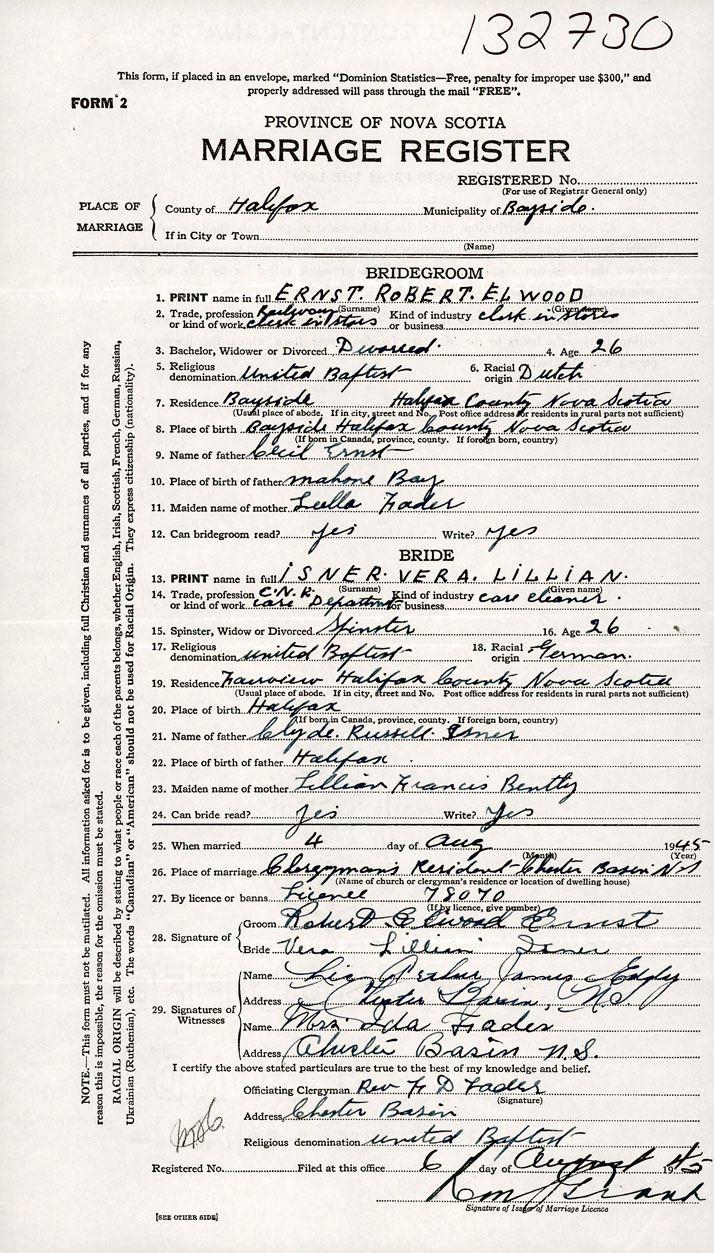 132730
This form, if placed in an envelope, marked "Dominion Statistics—Free, penalty for improper use $300," and
properly addressed will pass through the mail "FREE".
FORM 2
PROVINCE OF NOVA SCOTIA
MARRIAGE REGISTER
REGISTERED No.
(For use of Registrar General only)
PLACE OF MARRIAGE
County of Halifax Municipality of Bayside.
If in City or Town
(Name)
BRIDEGROOM
1. PRINT name in full ERNST. ROBERT. ELWOOD
(Surname) (Given name)
2. Trade, profession or kind of work Railway clerk in stores Kind of industry or business clerk in stores
3. Bachelor, Widower or Divorced Divorced. 4. Age 26
5. Religious denomination United Baptist 6. Racial origin Dutch
7. Residence Bayside Halifax County Nova Scotia
(Usual place of abode. If in city, street and No. Post office address for residents in rural parts not sufficient)
8. Place of birth Bayside Halifax County Nova Scotia
(If born in Canada, province, county. If foreign born, country)
9. Name of father Cecil Ernst
10. Place of birth of father mahone Bay
11. Maiden name of mother Luella Fader
12. Can bridegroom read? yes Write? yes
BRIDE
13. PRINT name in full ISNER. VERA. LILLIAN.
(Surname) (Given name)
14. Trade, profession or kind of work C.N.R. care Department Kind of industry or business care cleaner.
15. Spinster, Widow or Divorced Spinster 16. Age 26
17. Religious denomination united Baptist 18. Racial origin German.
19. Residence Fairview Halifax County Nova Scotia
(Usual place of abode. If in city, street and No. Post office address for residents in rural parts not sufficient)
20. Place of birth Halifax
(If born in Canada, province, county. If foreign born, country)
21. Name of father Clyde. Russell. Isner
22. Place of birth of father Halifax
23. Maiden name of mother Lillian Francis Bentley
24. Can bride read? yes Write? yes
25. When married 4 day of Aug 1945
(Month) (Year)
26. Place of marriage Clergyman's Resident Chester Basin N.S
(Name of church or clergyman's residence or location of dwelling house)
27. By licence or banns Licence 78070
(If by licence, give number)
28. Signature of
Groom Robert Elwood Ernst
Bride Vera Lillian Isner
29. Signatures of Witnesses
Name Arthur James
Address Chester Basin, N.S.
Name Mrs. Ida Fader
Address Chester Basin N.S.
I certify the above stated particulars are true to the best of my knowledge and belief.
Officiating Clergyman Rev F D Fader
(Signature)
Address Chester Basin
Religious denomination united Baptist
Registered No. Filed at this office 6 day of August 1945
Signature of Issuer of Marriage Licence
[SEE OTHER SIDE]
NOTE.—This form must not be mutilated. All information asked for is to be given, including full Christian and surnames of all parties, and if for any
reason this is impossible, the reason for the omission must be stated.
RACIAL ORIGIN will be described by stating to what people or race each of the parents belongs, whether English, Irish, Scottish, French, German, Russian,
Ukrainian (Ruthenian), etc. The words "Canadian" or "American" should not be used for Racial Origin. They express citizenship (nationality).